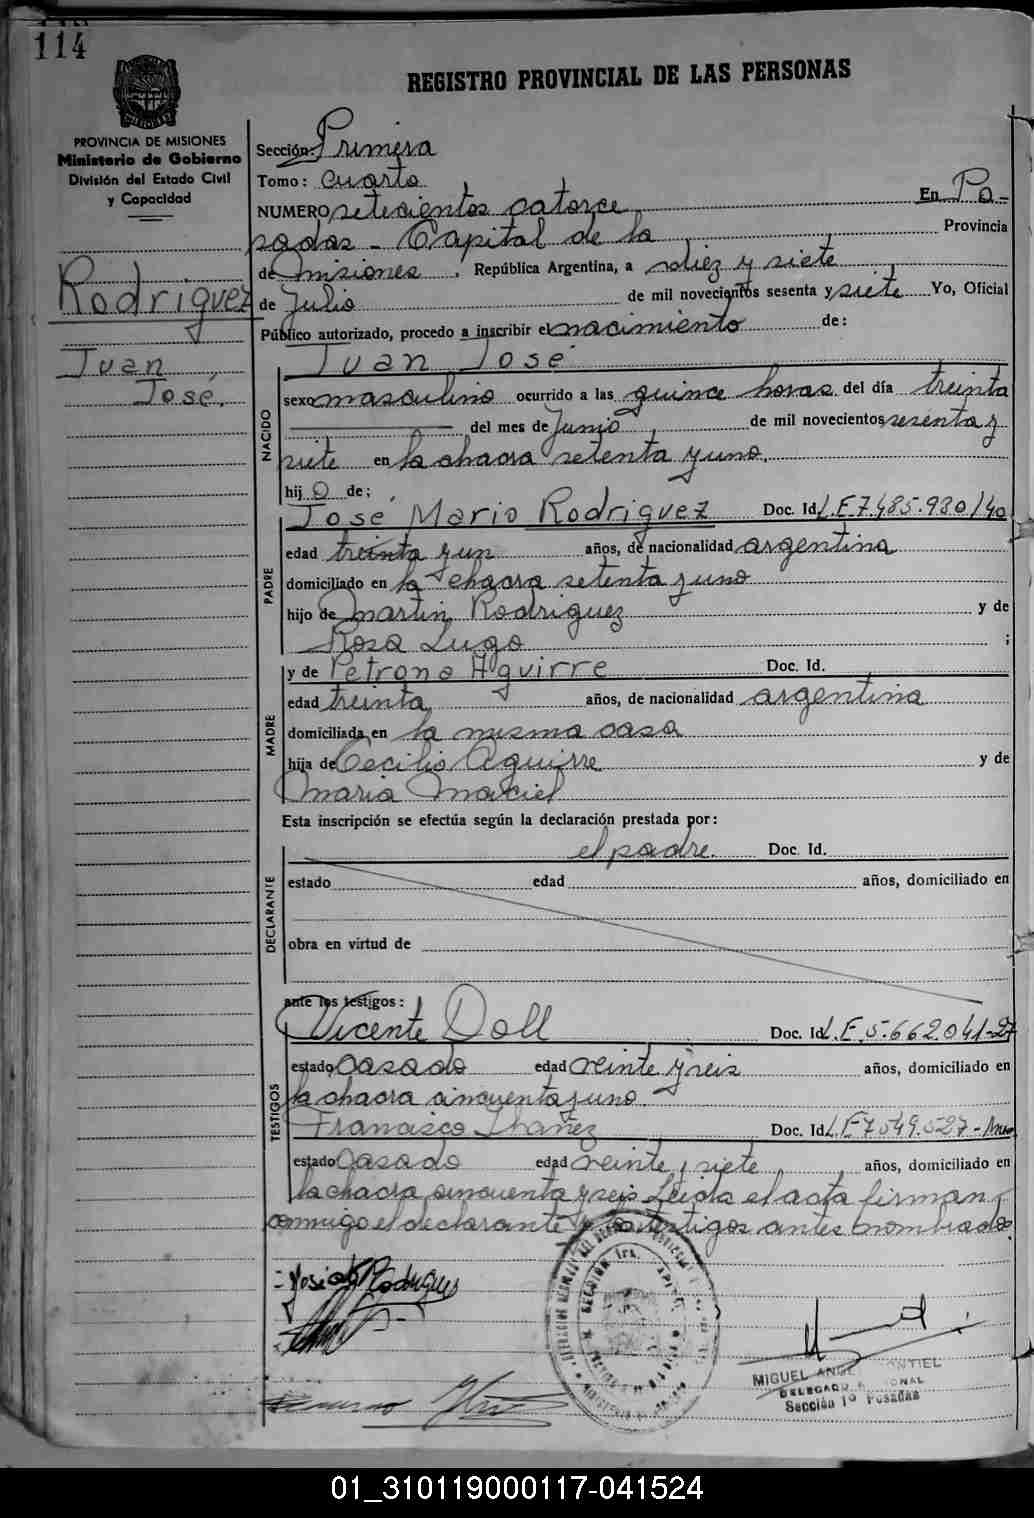 114
REGISTRO PROVINCIAL DE LAS PERSONAS
PROVINCIA DE MISIONES
Ministerio de Gobierno
División del Estado Civil
y Capacidad
Rodriguez
Juan
José.
Sección: Primera
Tomo: cuarto
NUMERO setecientos catorce En Po-
sadas - Capital de la Provincia
de misiones, República Argentina, a diez y siete
de Julio de mil novecientos sesenta y siete Yo, Oficial
Público autorizado, procedo a inscribir el nacimiento de:
Juan José
NACIDO
sexo masculino ocurrido a las quince horas del día treinta
del mes de Junio de mil novecientos sesenta y
siete en la chacra setenta y uno.
hijo de;
PADRE
José Mario Rodriguez Doc. Id. L.E.7.485.980/40
edad treinta y un años, de nacionalidad argentina
domiciliado en la chacra setenta y uno
hijo de martin Rodriguez y de
Rosa Lugo ;
MADRE
y de Petrona Aguirre Doc. Id.
edad treinta años, de nacionalidad argentina
domiciliada en la misma casa
hija de Cecilio Aguirre y de
maria maciel
Esta inscripción se efectúa según la declaración prestada por:
DECLARANTE
el padre. Doc. Id.
estado edad años, domiciliado en
obra en virtud de
ante los testigos:
TESTIGOS
Vicente Doll Doc. Id. L.E.5.662.041-27
estado casado edad veinte y seis años, domiciliado en
la chacra cincuenta y uno.
Francisco Ibañez Doc. Id. L.E 7549.527-
estado casado edad veinte y siete años, domiciliado en
la chacra cincuenta y seis Leida el acta firman
conmigo el declarante y los testigos antes nombrados.
Rodrigues
SECCION 1ra.
MIGUEL
DELEGADO
Sección 1º Posadas
01_310119000117-041524